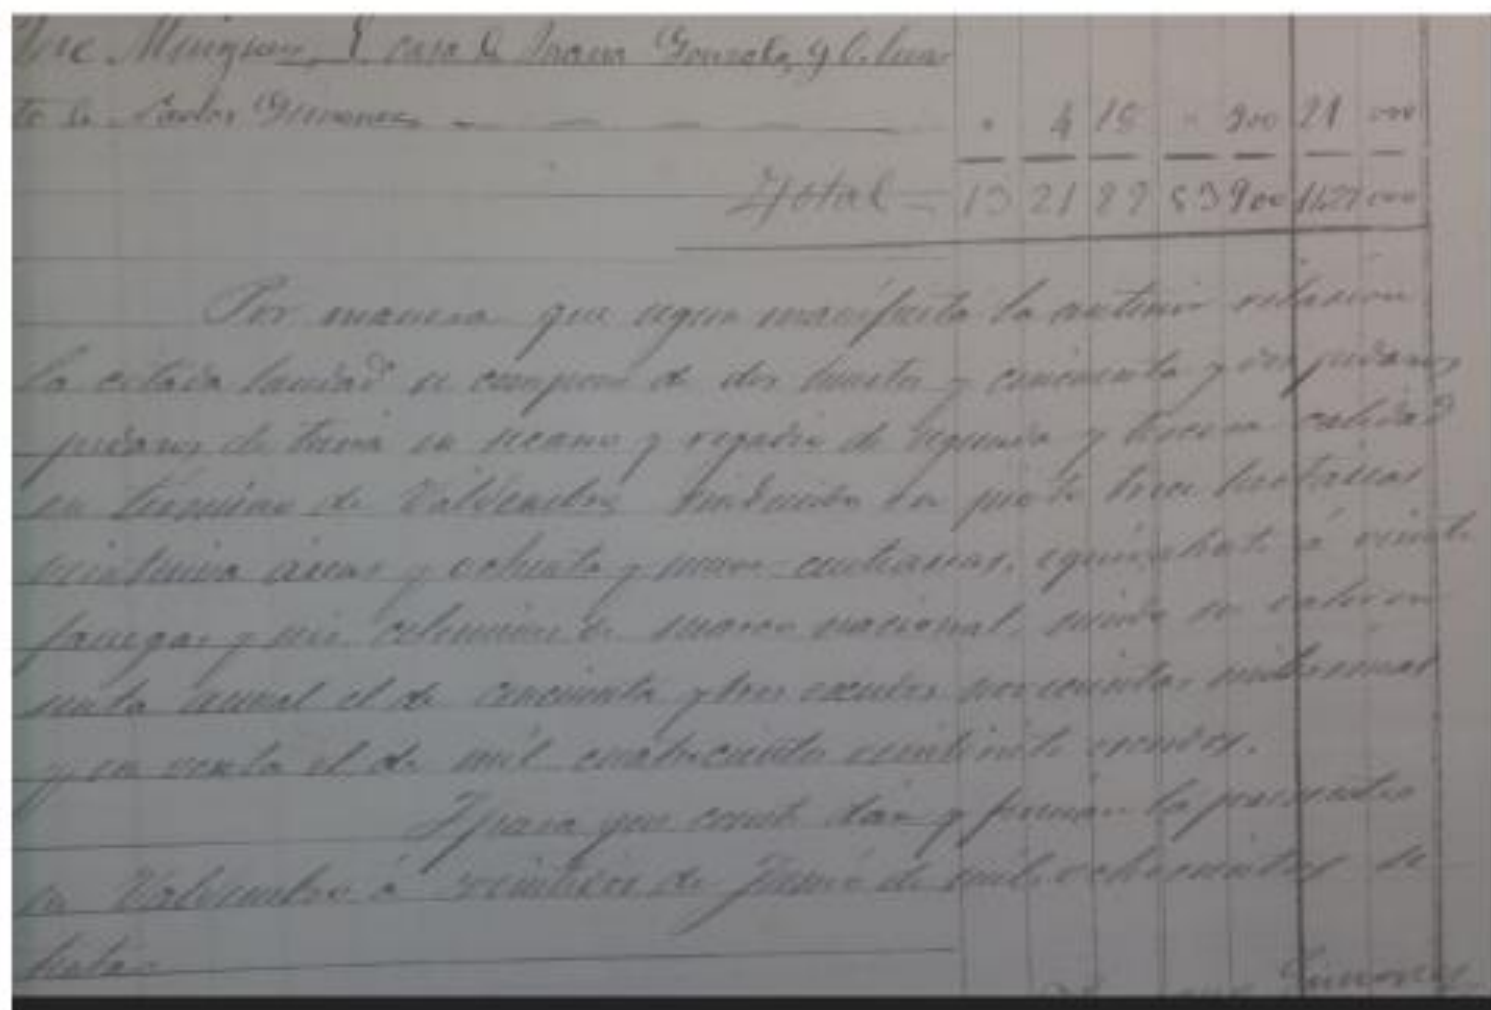 Jose Minguez, E. casa de Juana Gonzalez, y O. huer
to de Carlos Gimenez — — — — — " 4 15 " 900 21 000
Total — 13 21 89 53 900 1427 000
Por manera que segun manifiesta la anterior relacion
la citada heredad se compone de dos huertos y cincuenta y dos pedazos
pedazos de tierra en secano y regadio de segunda y tercera calidad
en termino de Valdecuebas en junto trece hectareas
veintiuna áreas y ochenta y nueve centiareas, equivalente á veinte
fanegas y seis celemines de marco nacional, siendo su valor en
renta anual el de cincuenta y tres escudos novecientas milesimas
y en venta el de mil cuatrocientos veintisiete escudos.
Y para que conste dán y firman la presente
en á de Junio de mil ochocientos se
Gimenez